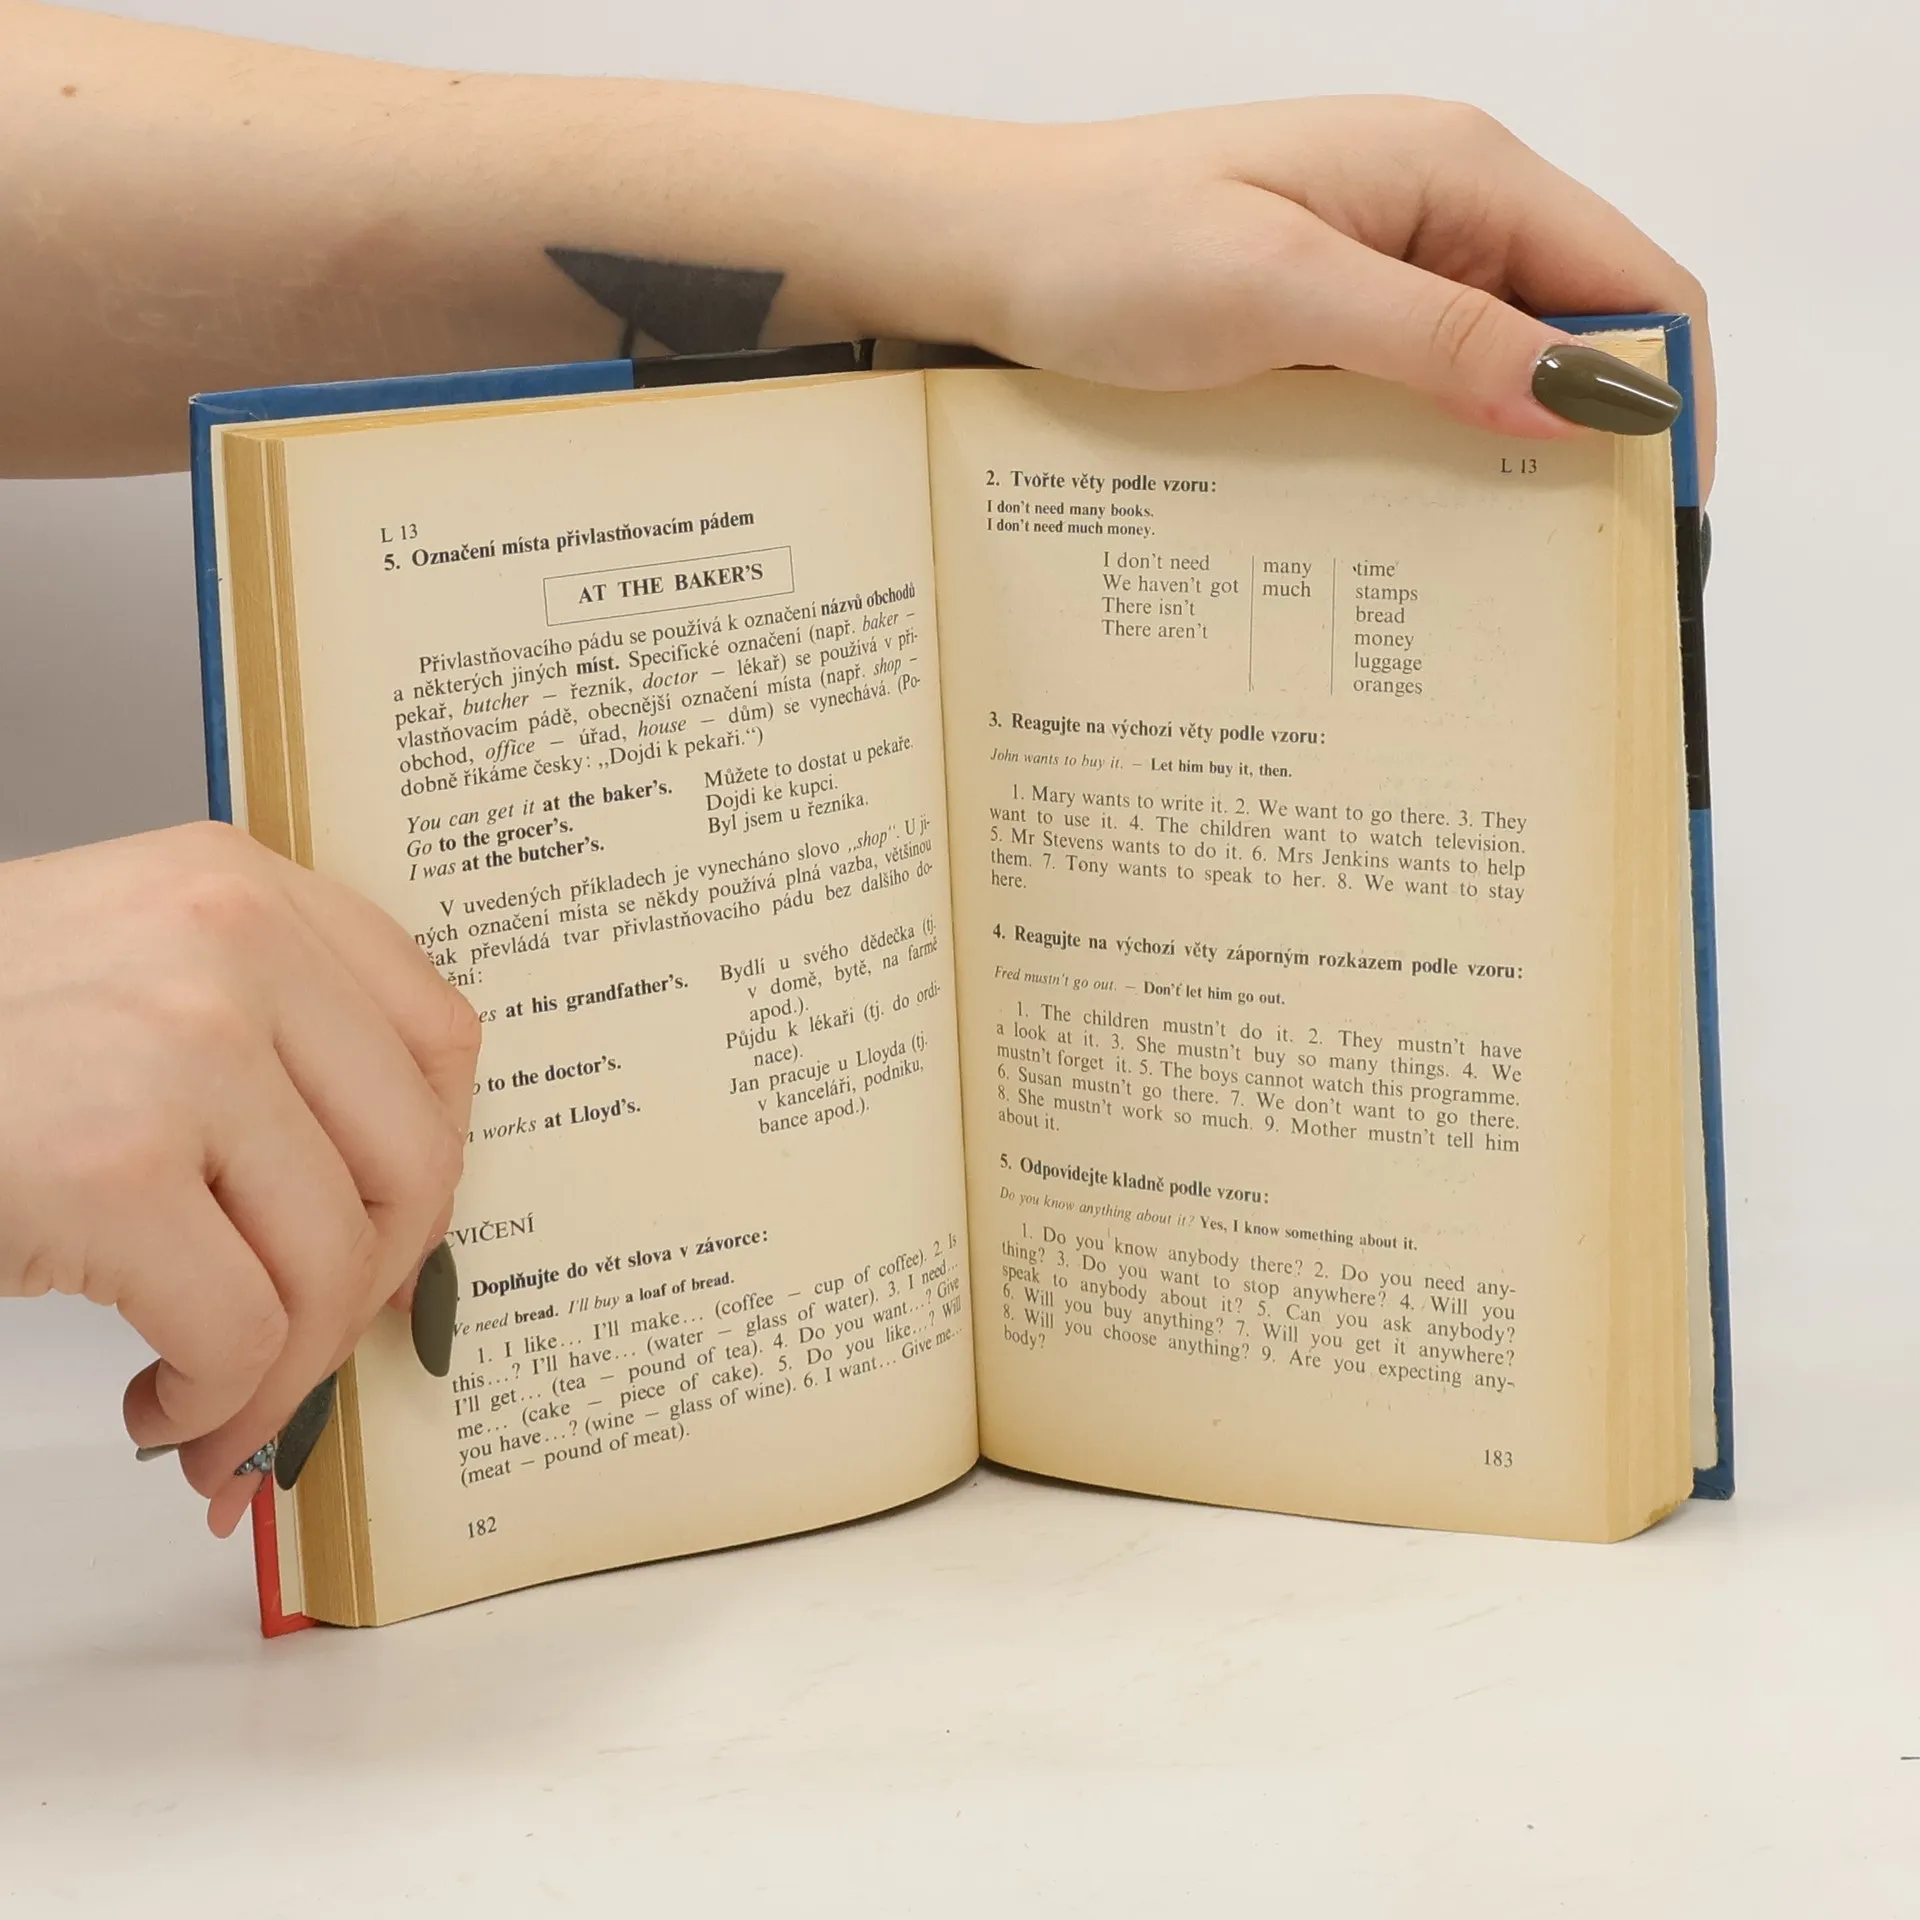 L 13
5. Označení místa přivlastňovacím pádem
AT THE BAKER'S
Přivlastňovacího pádu se používá k označení názvů obchodů
a některých jiných míst. Specifické označení (např. baker –
pekař, butcher – řezník, doctor – lékař) se používá v při-
vlastňovacím pádě, obecnější označení místa (např. shop –
obchod, office – úřad, house – dům) se vynechává. (Po-
dobně říkáme česky: „Dojdi k pekaři.“)
You can get it at the baker's. Můžete to dostat u pekaře.
Go to the grocer's. Dojdi ke kupci.
I was at the butcher's. Byl jsem u řezníka.
V uvedených příkladech je vynecháno slovo „shop“. U ji-
ných označení místa se někdy používá plná vazba, většinou
šak převládá tvar přivlastňovacího pádu bez dalšího do-
ění:
es at his grandfather's. Bydlí u svého dědečka (tj.
v domě, bytě, na farmě
apod.).
to the doctor's. Půjdu k lékaři (tj. do ordi-
nace).
works at Lloyd's. Jan pracuje u Lloyda (tj.
v kanceláři, podniku,
bance apod.).
CVIČENÍ
Doplňujte do vět slova v závorce:
We need bread. I'll buy a loaf of bread.
1. I like... I'll make... (coffee – cup of coffee). 2. Is
this...? I'll have... (water – glass of water). 3. I need...
I'll get... (tea – pound of tea). 4. Do you want...? Give
me... (cake – piece of cake). 5. Do you like...? Will
you have...? (wine – glass of wine). 6. I want... Give me...
(meat – pound of meat).
182
L 13
2. Tvořte věty podle vzoru:
I don't need many books.
I don't need much money.
I don't need many time
We haven't got much stamps
There isn't bread
There aren't money
luggage
oranges
3. Reagujte na výchozí věty podle vzoru:
John wants to buy it. – Let him buy it, then.
1. Mary wants to write it. 2. We want to go there. 3. They
want to use it. 4. The children want to watch television.
5. Mr Stevens wants to do it. 6. Mrs Jenkins wants to help
them. 7. Tony wants to speak to her. 8. We want to stay
here.
4. Reagujte na výchozí věty záporným rozkazem podle vzoru:
Fred mustn't go out. – Don't let him go out.
1. The children mustn't do it. 2. They mustn't have
a look at it. 3. She mustn't buy so many things. 4. We
mustn't forget it. 5. The boys cannot watch this programme.
6. Susan mustn't go there. 7. We don't want to go there.
8. She mustn't work so much. 9. Mother mustn't tell him
about it.
5. Odpovídejte kladně podle vzoru:
Do you know anything about it? Yes, I know something about it.
1. Do you know anybody there? 2. Do you need any-
thing? 3. Do you want to stop anywhere? 4. Will you
speak to anybody about it? 5. Can you ask anybody?
6. Will you buy anything? 7. Will you get it anywhere?
8. Will you choose anything? 9. Are you expecting any-
body?
183